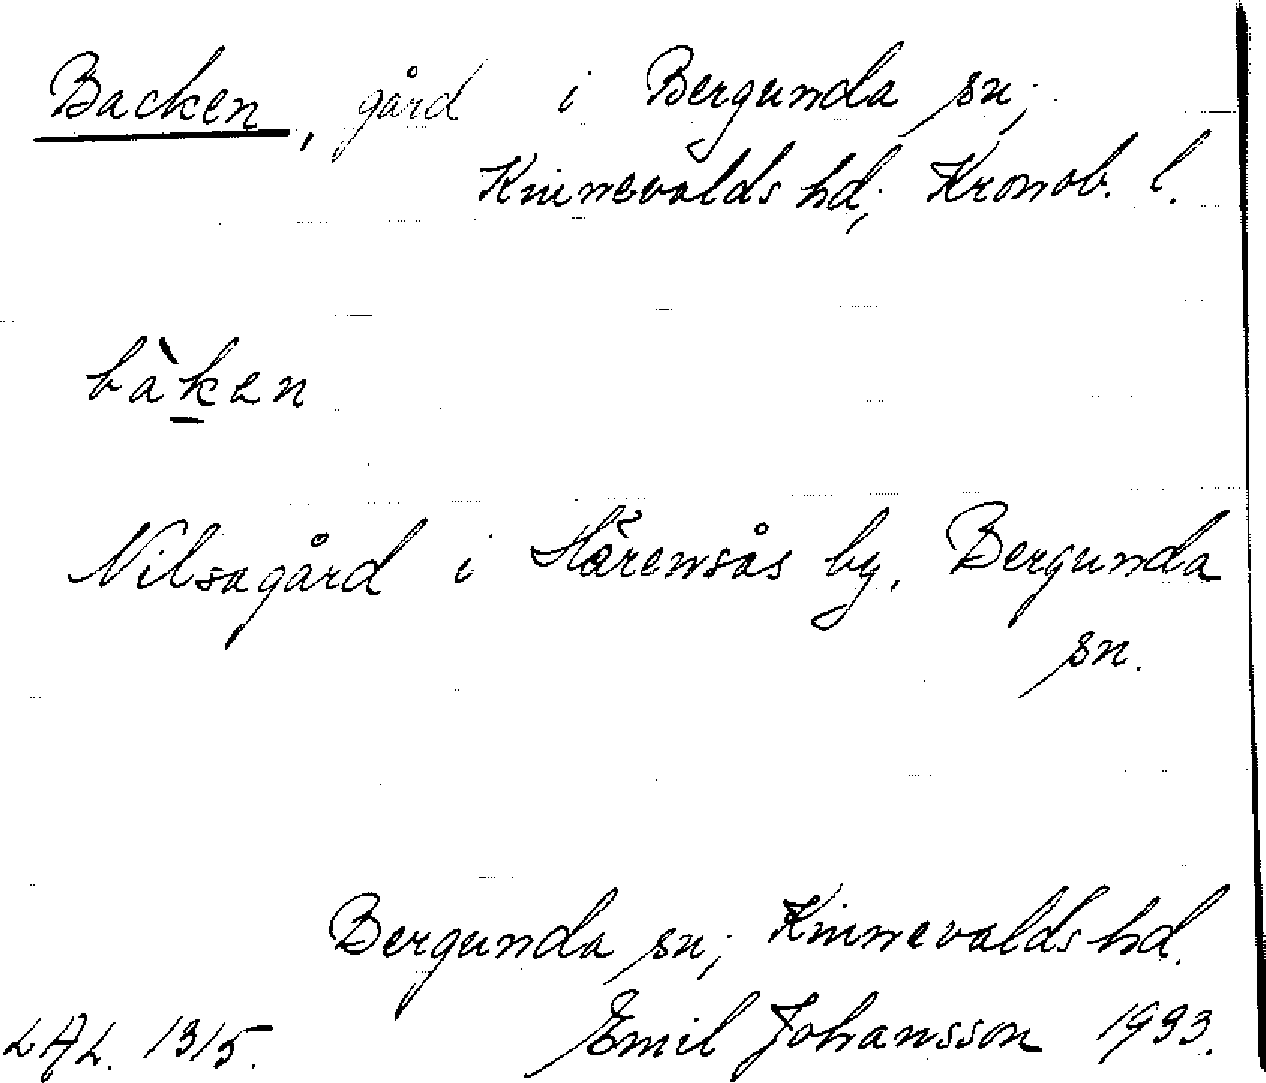 Backen, gård i Bergunda sn,
Kinnevalds hd, Kronob. l.
bàk̲en
Nilsagård i Härensås by, Bergunda
sn.
Bergunda sn, Kinnevalds hd.
LAL. 1315. Emil Johansson 1933.